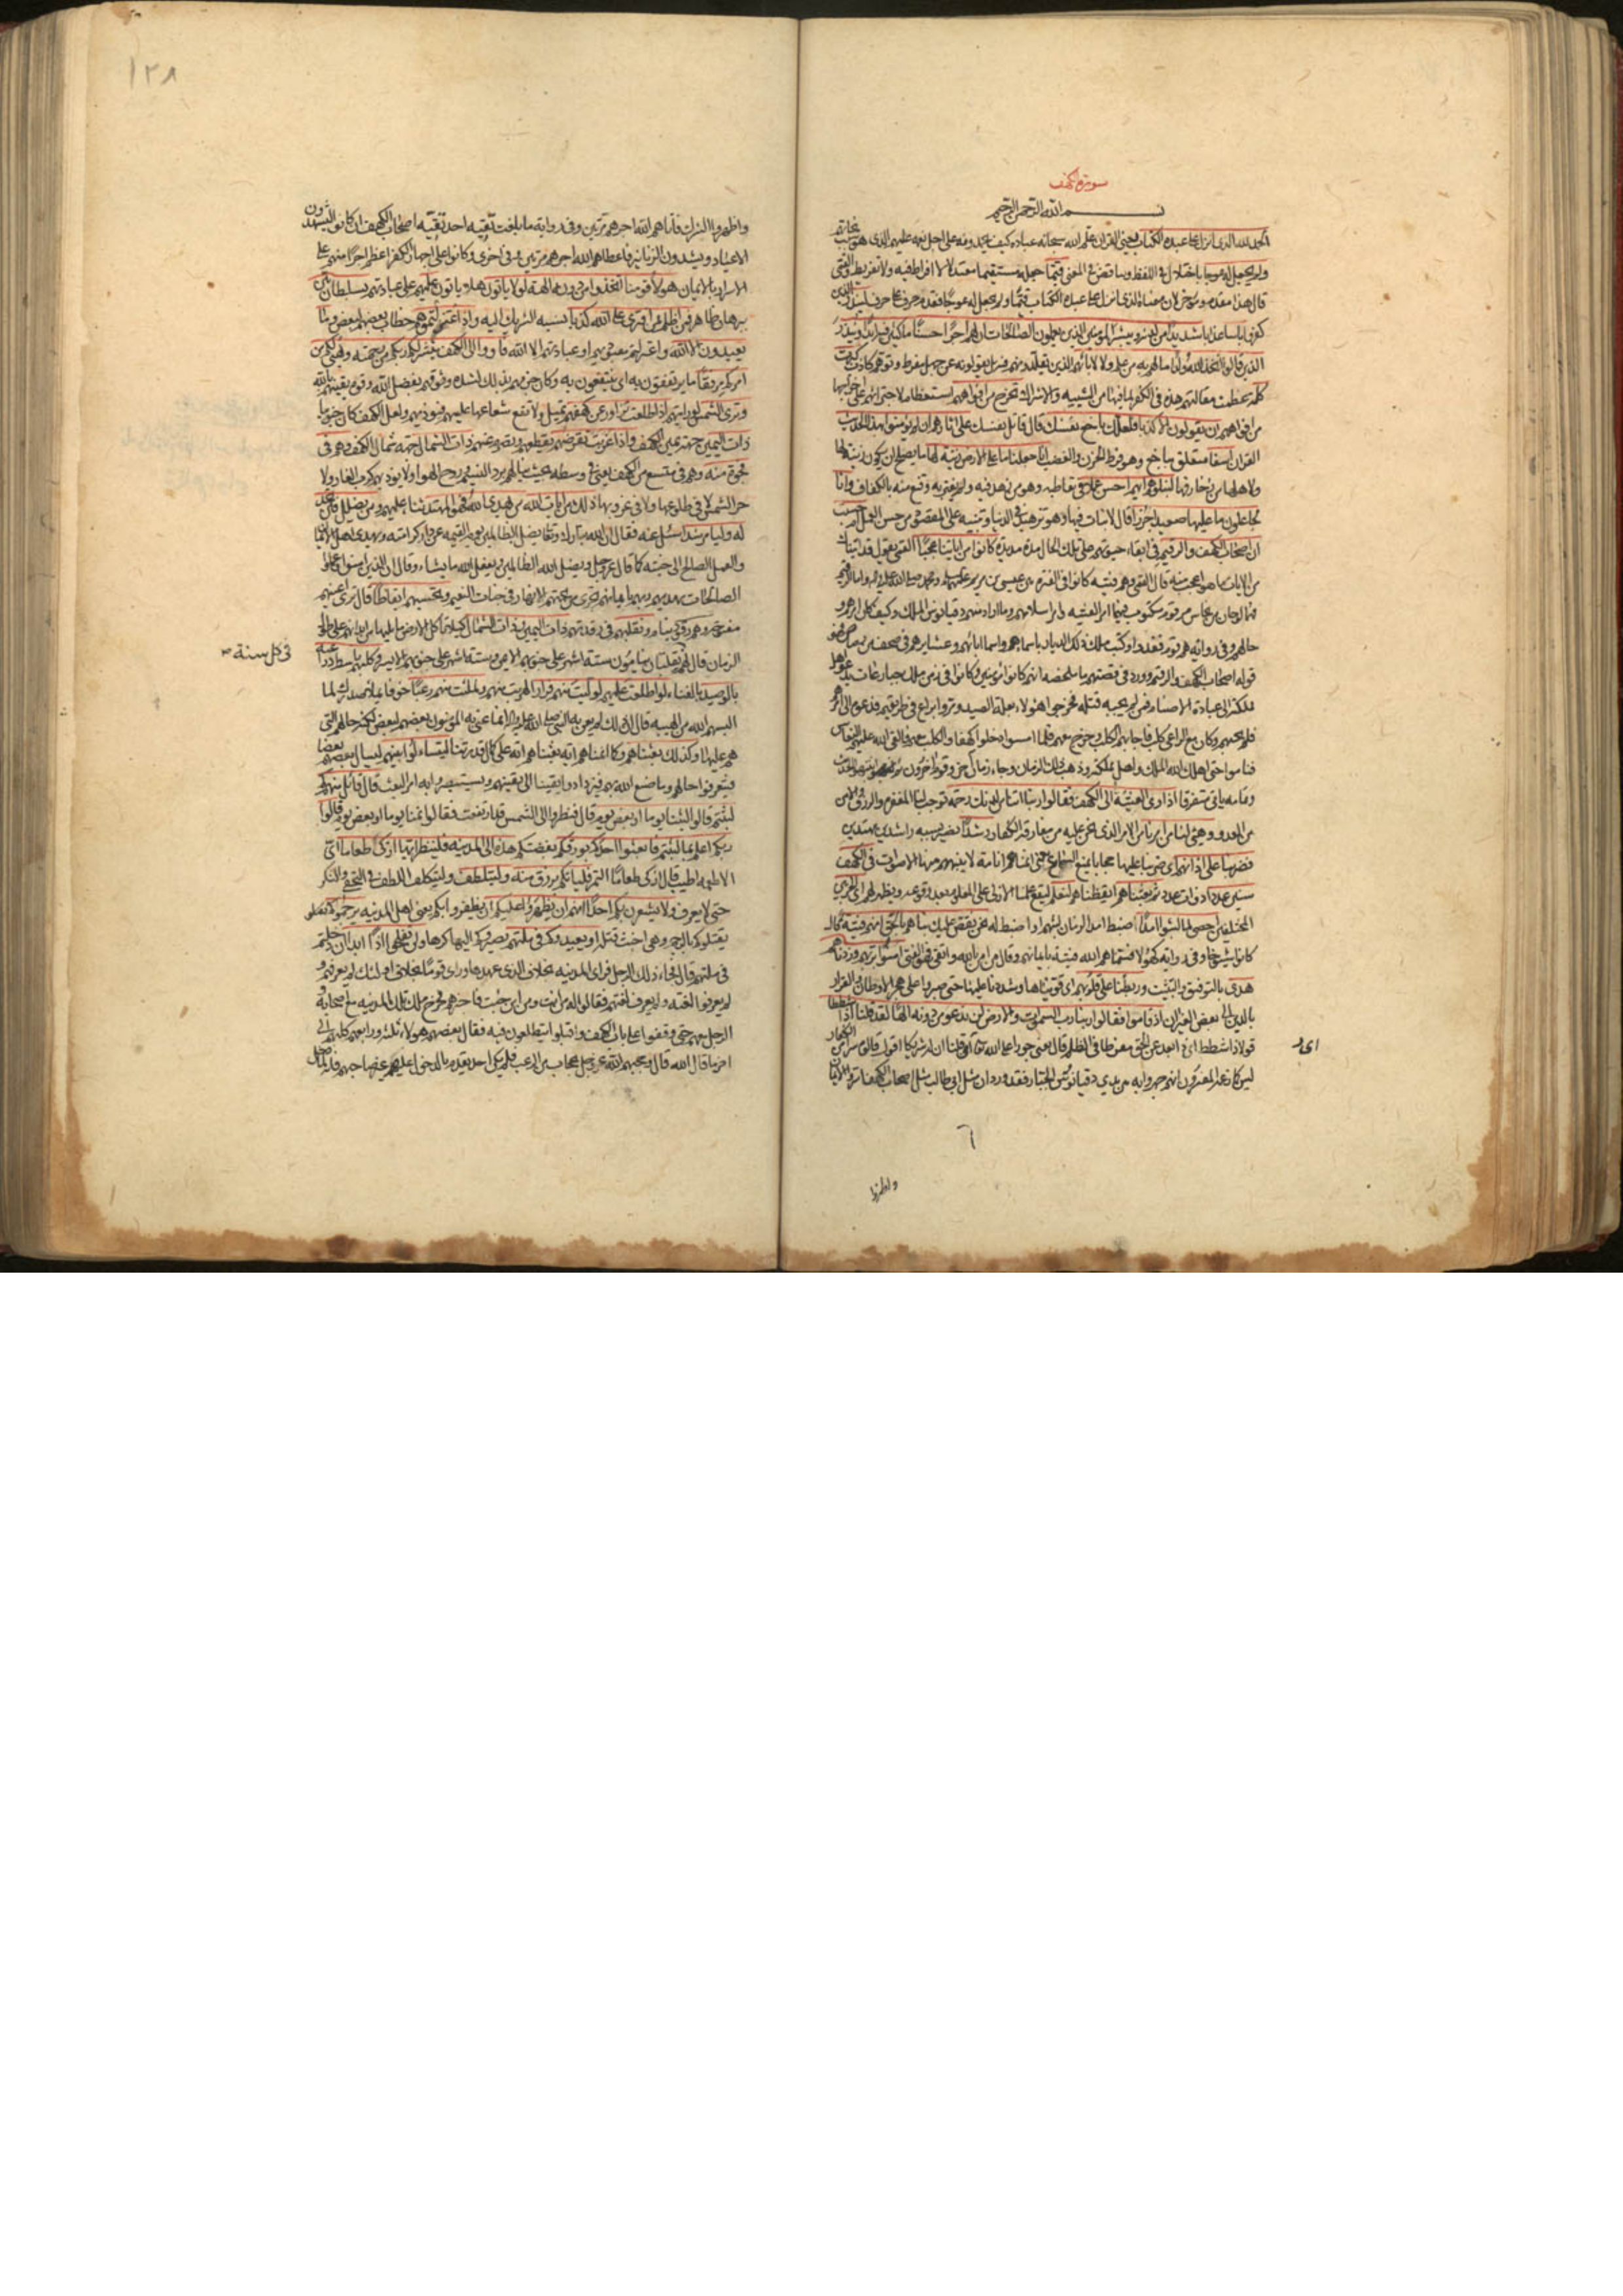 سورة الكهف
بسم الله الرحمن الرحيم
الحمد لله الذي انزل على عبده الكتاب يعني القران علم الله سبحانه عباده كيف يحمدونه على اجل نعمه عليهم الذي هو سبب نجاتهم
ولم يجعل له عوجا باختلال في اللفظ وتناقض في المعنى قيما جعله مستقيما معتدلا لا افراط فيه ولا تفريط والقمي
قال هذا مقدم ومؤخر لان معناه الذي انزل على عبده الكتاب قيما ولم يجعل له عوجا فقدم حرف على حرف لينذر الذين
كفروا باسا عذابا شديدا من لدنه ويبشر المؤمنين الذين يعملون الصالحات ان لهم اجرا حسنا ماكثين فيه ابدا وينذر
الذين قالوا اتخذ الله ولدا ما لهم به من علم ولا لابائهم الذين يقلدونهم فيه بل يقولونه عن جهل مفرط وتوهم كاذب كبرت
كلمة عظمت مقالتهم هذه في الكفر لما فيها من التشبيه والاشراك تخرج من افواههم استعظاما لاجترائهم على اخراجها
من افواههم ان يقولون الا كذبا فلعلك باخع نفسك قال قاتل نفسك على اثارهم ان لم يؤمنوا بهذا الحديث
القران اسفا متعلق بباخع وهو فرط الحزن والغضب انا جعلنا ما على الارض زينة لها ما يصلح ان يكون زينة لها
ولاهلها من زخارفها لنبلوهم ايهم احسن عملا في تعاطيه وهو من زهد فيه ولم يغتر به وقنع منه بالكفاف وانا
لجاعلون ما عليها صعيدا جرزا قال لا نبات فيها وهو تزهيد في الدنيا وتنبيه على المقصود من حسن العمل ام حسبت
ان اصحاب الكهف والرقيم في ابقاء حيوتهم على تلك الحال مدة مديدة كانوا من اياتنا عجبا القمي يقول قد اتيناك
من الايات ما هو اعجب منه قال القمي وهم فتية كانوا في الفترة بين عيسى بن مريم عليهما السلام ومحمد صلى الله عليه واله واما الرقيم
فهما لوحان من نحاس مرقوم مكتوب فيهما امر الفتية وامر اسلامهم وما اراد منهم دقيانوس الملك وكيف كان امرهم و
حالهم
قوله اصحاب الكهف والرقيم وورد في قصتهم ما ملخصه انهم كانوا مؤمنين وكانوا في زمن ملك جبار عات يدعو اهل
مملكته الى عبادة الاصنام فمن لم يجبه قتله فخرجوا هؤلاء بعلة الصيد ومروا براع في طريقهم فدعوه الى امرهم
فلم يجبهم وكان مع الراعي كلب فاجابهم الكلب وخرج معهم فلما امسوا دخلوا كهفا والكلب معهم فالقى الله عليهم النعاس
فناموا حتى اهلك الله الملك واهل مملكته وذهب ذلك الزمان وجاء زمان اخر وقوم اخرون
وتمامه ياتي متفرقا اذ اوى الفتية الى الكهف فقالوا ربنا اتنا من لدنك رحمة توجب لنا المغفرة والرزق والامن
من العدو وهيئ لنا من امرنا من الامر الذي نحن عليه من مفارقة الكفار رشدا نصير بسببه راشدين مهتدين
فضربنا على اذانهم اي ضربنا عليها حجابا يمنع السماع يعني انمناهم انامة لا ينبههم منها الاصوات في الكهف
سنين عددا ذوات عدد ثم بعثناهم ايقظناهم لنعلم ليقع علمنا الازلي على المعلوم بعد وقوعه ويظهر لهم اي الحزبين
المختلفين احصى لما لبثوا امدا اضبط امد الزمان لبثهم او اضبط له نحن نقص عليك نباهم بالحق انهم فتية قال
كانوا شيوخا وفي رواية كهولا فسماهم الله فتية بايمانهم وقال من امن بالله واتقى فهو الفتى امنوا بربهم وزدناهم
هدى بالتوفيق والتثبيت وربطنا على قلوبهم اي قويناها وشددنا عليها حتى صبروا على هجر الاوطان والفرار
بالدين الى بعض الغيران اذ قاموا فقالوا ربنا رب السموات والارض لن ندعو من دونه الها لقد قلنا اذا شططا
قولا ذا شطط اي ذا بعد عن الحق مفرط في الظلم قال يعني جورا على الله تعالى ان قلنا ان له شريكا
اى ر
واظهروا
واظهروا الشرك فاتاهم الله اجرهم مرتين وفي رواية ما بلغت تقية احد تقية اصحاب الكهف ان كانوا ليشهدون
الاعياد ويشدون الزنانير فاعطاهم الله اجرهم مرتين وفي اخرى وكانوا على اجهار الكفر اعظم اجرا منهم على
الاسرار بالايمان هؤلاء قومنا اتخذوا من دونه الهة لولا ياتون هلا ياتون عليهم على عبادتهم بسلطان بين
ببرهان ظاهر فمن اظلم ممن افترى على الله كذبا بنسبة الشريك اليه واذ اعتزلتموهم خطاب بعضهم لبعض وما
يعبدون الا الله واعتزلتم معبوديهم او عبادتهم الا الله فاووا الى الكهف ينشر لكم ربكم من رحمته ويهيئ لكم من
امركم مرفقا ما يرتفقون به اي ينتفعون به وكان جزمهم بذلك لشدة وثوقهم بفضل الله وقوة يقينهم بالله
وترى الشمس لو رايتهم اذا طلعت تزاور عن كهفهم تميل ولا تقع شعاعها عليهم فيؤذيهم ولعل الكهف كان جنوبيا
ذات اليمين جهة يمين الكهف واذا غربت تقرضهم تقطعهم وتصرم عنهم ذات الشمال جهة شمال الكهف وهم في
فجوة منه وهم في متسع من الكهف يعني في وسطه بحيث ينالهم برد النسيم وروح الهواء ولا يؤذيهم كرب الغار ولا
حر الشمس لا في طلوعها ولا في غروبها ذلك من ايات الله من يهدي الله فهو المهتد ومن يضلل فلن تجد
له وليا مرشدا سئل عنه فقال ان الله تبارك وتعالى يضل الظالمين يوم القيمة عن دار كرامته ويهدي اهل الايمان
والعمل الصالح الى جنته كما قال عز وجل ويضل الله الظالمين ويفعل الله ما يشاء وقال ان الذين امنوا وعملوا
الصالحات يهديهم ربهم بايمانهم تجري من تحتهم الانهار في جنات النعيم وتحسبهم ايقاظا قال ترى اعينهم
مفتوحة وهم رقود نيام ونقلبهم في رقدتهم ذات اليمين وذات الشمال كيلا تاكل الارض ما يليها من ابدانهم على طول
الزمان قال لهم نقلبتان ينامون ستة اشهر على جنوبهم الايمن وستة اشهر على جنوبهم الايسر وكلبهم باسط ذراعيه
في كل سنة
بالوصيد بالفناء لو اطلعت عليهم لوليت منهم فرارا لهربت منهم ولملئت منهم رعبا خوفا يملا صدرك لما
البسهم الله من الهيبة قال ان ذلك لم يعن به النبي صلى الله عليه واله انما عني به المؤمنون بعضهم لبعض لكنه حالهم التي
هم عليها وكذلك بعثناهم وكما انمناهم اية بعثناهم اية على كمال قدرتنا ليتساءلوا بينهم ليسال بعضهم بعضا
فيتعرفوا حالهم وما صنع الله بهم فيزدادوا يقينا الى يقينهم ويستبصروا به امر البعث قال قائل منهم كم
لبثتم قالوا لبثنا يوما او بعض يوم قال فنظروا الى الشمس قد ارتفعت فقالوا نمنا يوما او بعض يوم قالوا
ربكم اعلم بما لبثتم فابعثوا احدكم بورقكم بفضتكم هذه الى المدينة فلينظر ايها ازكى طعاما اي
الاطعمة اطيب قال ازكى طعاما التمر فلياتكم برزق منه وليتلطف وليتكلف اللطف في التخفي والتنكر
حتى لا يعرف ولا يشعرن بكم احدا انهم ان يظهروا عليكم ان يظفروا بكم يعني اهل المدينة يرجموكم
يقتلوكم بالرجم وهي اخبث قتلة او يعيدوكم في ملتهم يصيروكم اليها كرها ولن تفلحوا اذا ابدا ان دخلتم
في ملتهم قال فجاء ذلك الرجل فراى المدينة بخلاف الذي عهدها وراى قوما بخلاف اولئك لم يعرفهم و
لم يعرفوا لغته ولم يعرف لغتهم فقالوا له من انت ومن اين جئت فاخبرهم فخرج ملك تلك المدينة مع اصحابه و
الرجل معهم حتى وقفوا على باب الكهف واقبلوا يتطلعون فيه فقال بعضهم هؤلاء ثلثة ورابعهم كلبهم الى
اخر ما قال الله قال وحجبهم الله عز وجل بحجاب من الرعب فلم يكن احد يقدم بالدخول عليهم غير صاحبهم
١٢٨